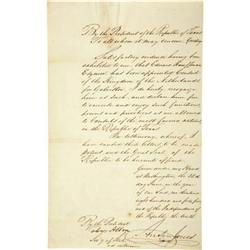 By the President of the Republic of Texas
To all whom it may concern Greeting
Satisfactory evidence having been
exhibited to me that
Esquire has been appointed Consul
of the Kingdom of the Netherlands
for Galveston I do hereby recognize
him as such, and declare him free
to exercise and enjoy such functions,
powers and privileges as are allowed
to Consuls of the most favored nations
in the Republic of Texas.
In testimony whereof, I
have caused these letters to be made
patent and the Great Seal of
the Republic to be hereunto affixed.
Given under my Hand
at Washington, the
day June, in the year of
our Lord, one thousand
eight hundred and forty five
and of the Independence of
the Republic the tenth
By the President
Anson Jones
Secy of State